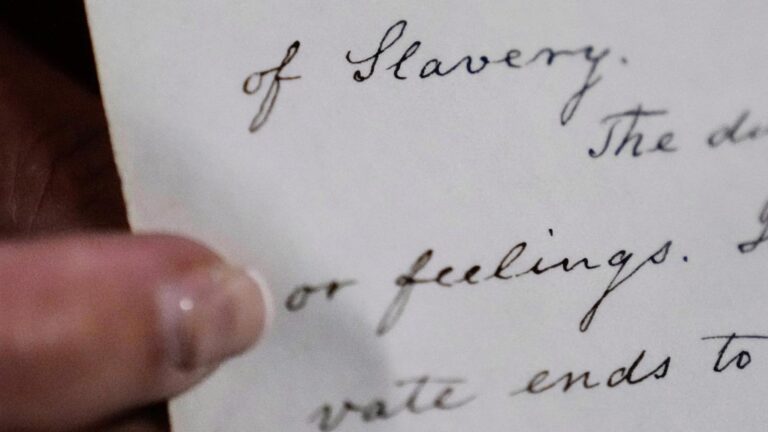 of Slavery.
The
or feelings.
vate ends to